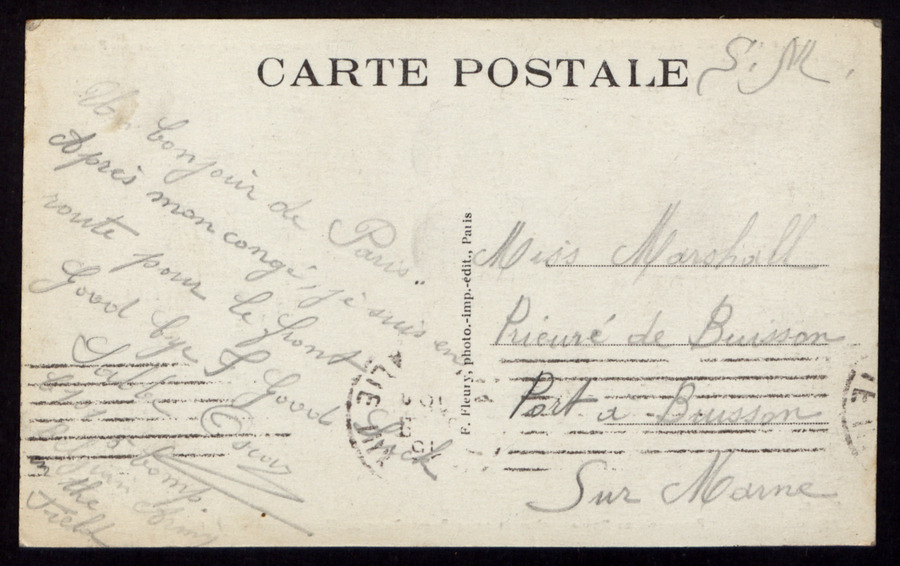 CARTE POSTALE
S. M.
Un bonjour de Paris"
Après mon congé, je suis en
route pour le front
Good bye & Good Luck
Oscar
Comp
in the
Field
F. Fleury, photo.-imp.-édit., Paris
Miss Marshall
Prieuré de Buisson
Port à Buisson
Sur Marne